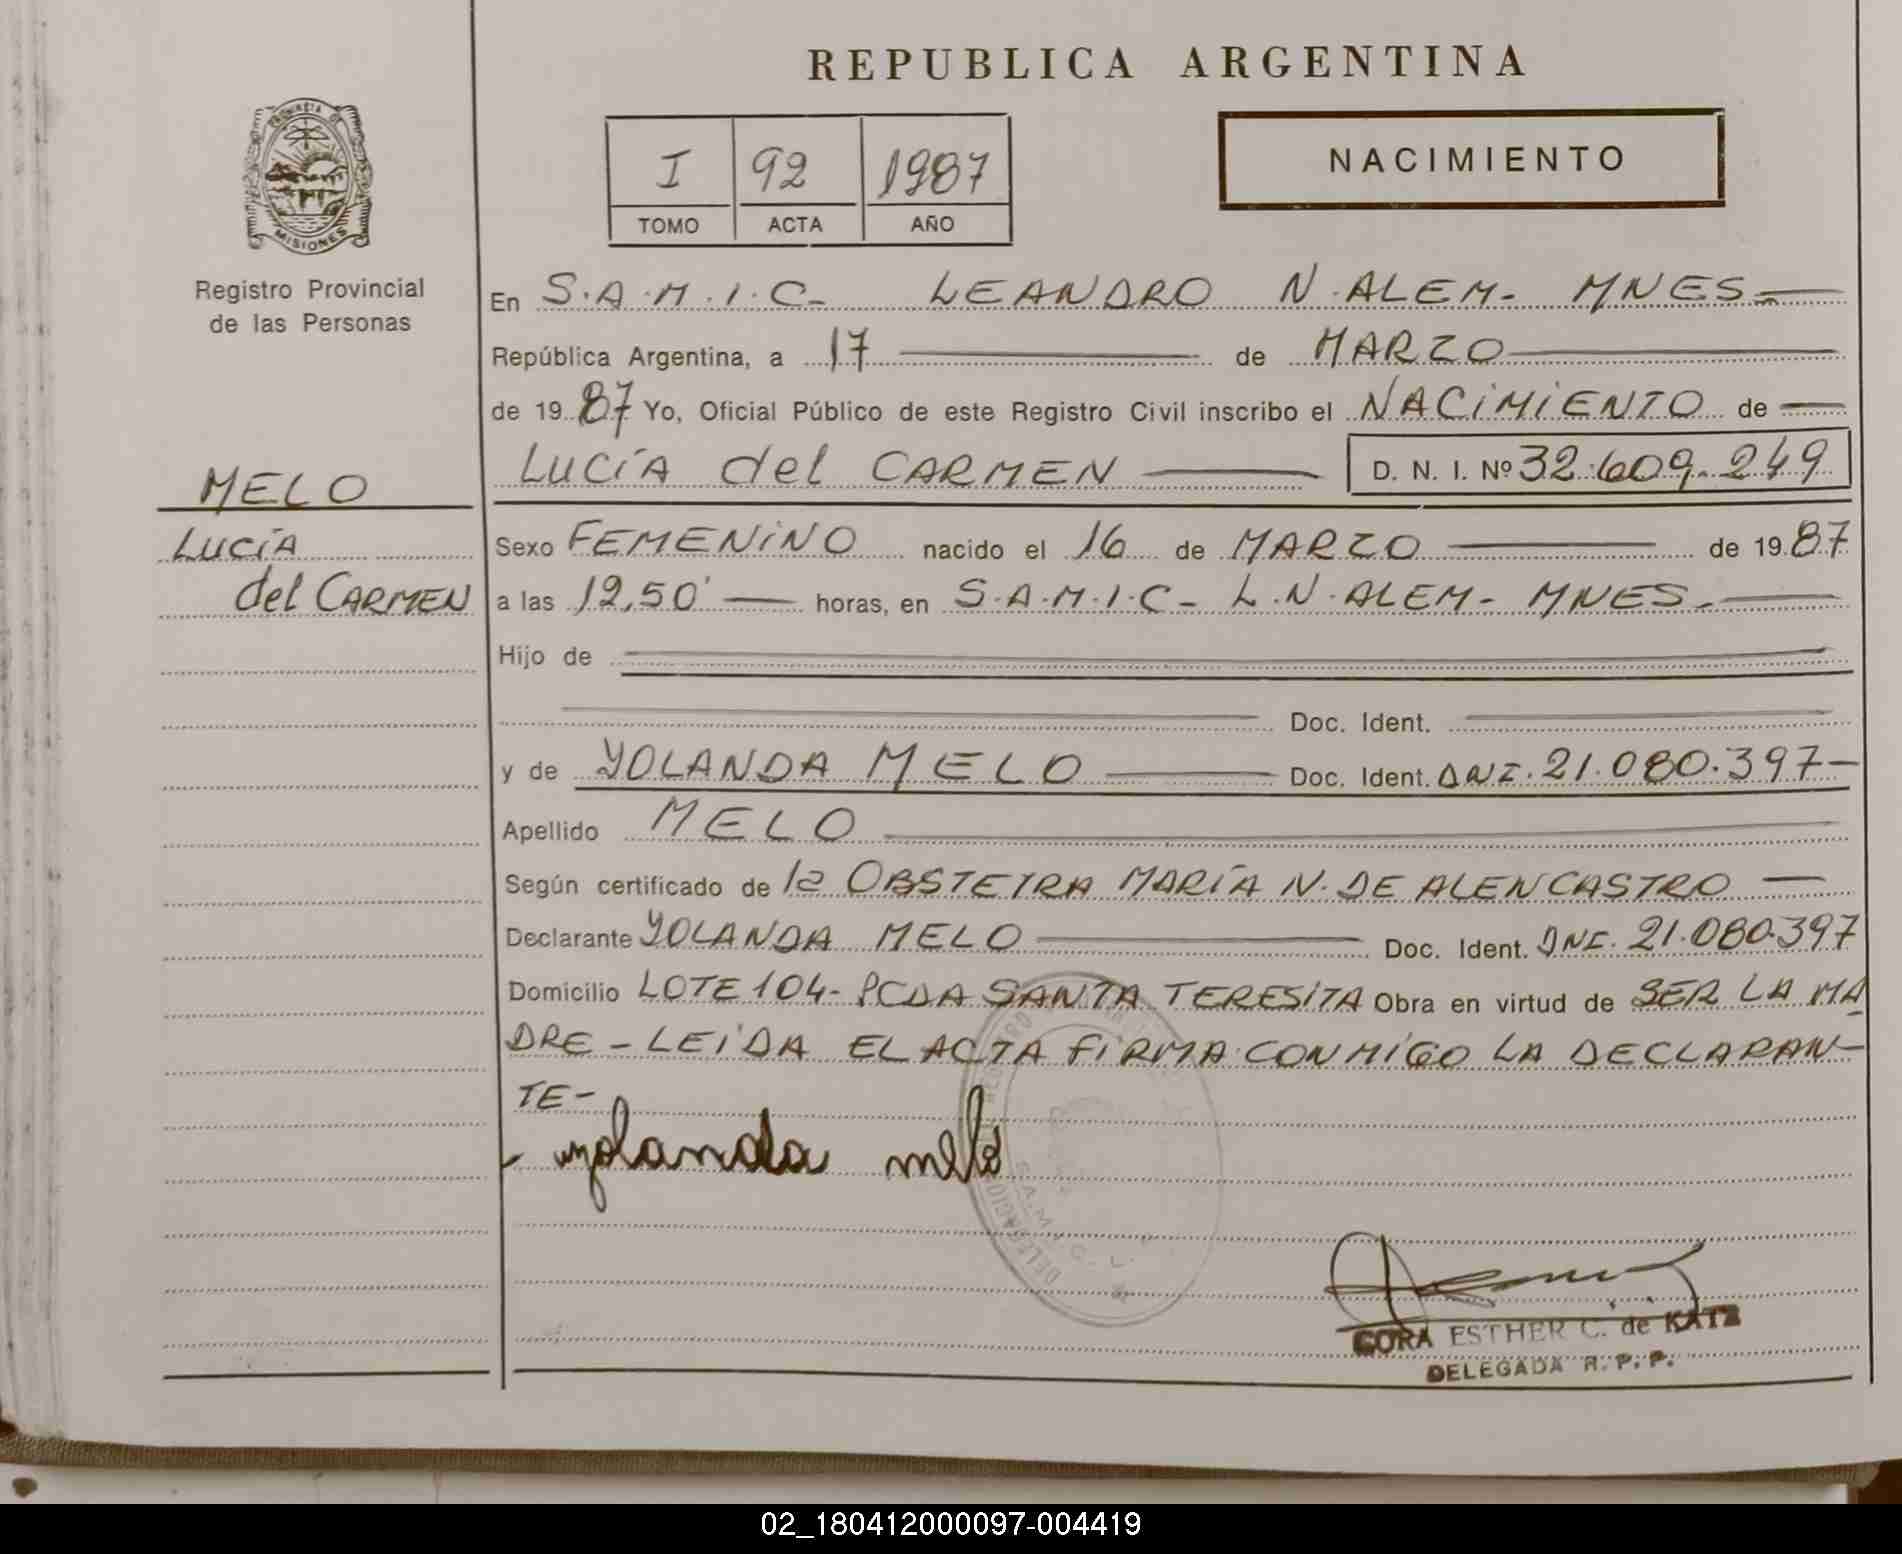 REPUBLICA ARGENTINA
PROVINCIA DE
MISIONES
Registro Provincial
de las Personas
I 92 1987
TOMO ACTA AÑO
NACIMIENTO
En S.A.M.I.C- LEANDRO N.ALEM- MNES-
República Argentina, a 17 de MARZO
de 1987 Yo, Oficial Público de este Registro Civil inscribo el NACIMIENTO de
LUCÍA del CARMEN D. N. I. Nº 32.609.249
MELO
LUCÍA
del CARMEN
Sexo FEMENINO nacido el 16 de MARZO de 1987
a las 12,50' horas, en S.A.M.I.C- L.N.ALEM- MNES-
Hijo de
Doc. Ident.
y de YOLANDA MELO Doc. Ident. DNI.21.080.397-
Apellido MELO
Según certificado de la OBSTETRA MARÍA N. DE ALENCASTRO
Declarante YOLANDA MELO Doc. Ident. DNI. 21.080.397
Domicilio LOTE 104- PCDA SANTA TERESITA Obra en virtud de SER LA MA
DRE - LEIDA EL ACTA FIRMA CONMIGO LA DECLARAN-
TE-
- yolanda melo
DELEGACION
S.A.M.I.C. L.
CORA ESTHER C. de KATZ
DELEGADA R. P. P.
02_180412000097-004419